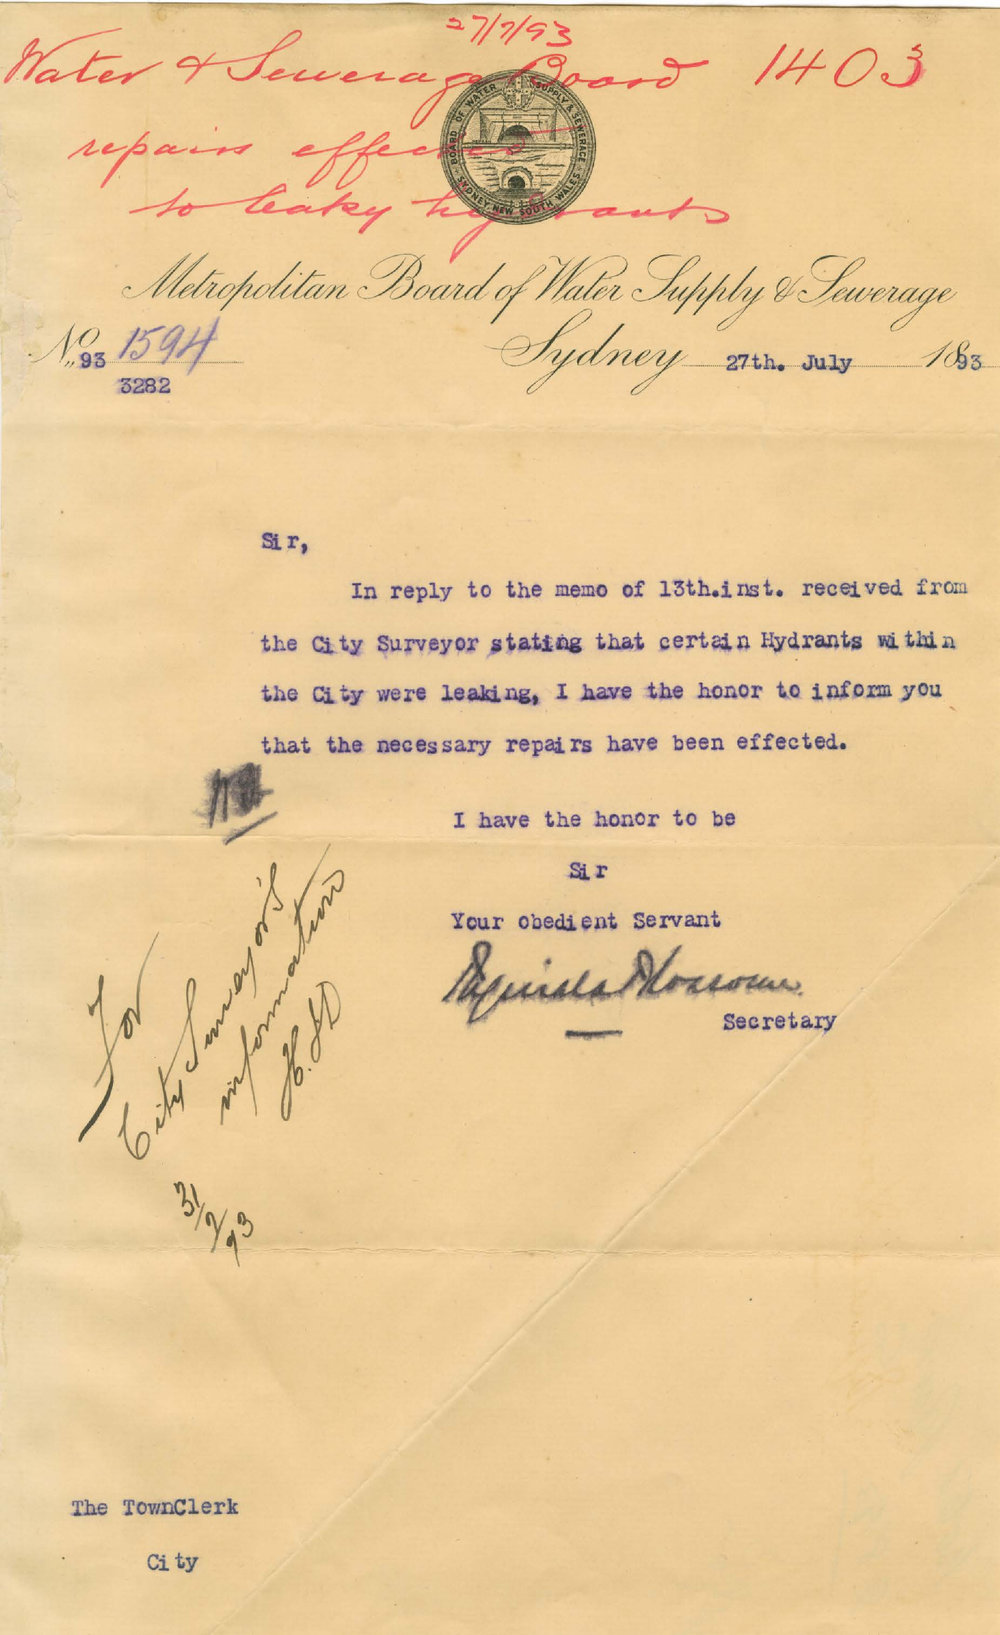 27/7/93
Water & Sewerage Board 1403
repairs effected
to leaky hydrants
BOARD OF WATER SUPPLY & SEWERAGE
SYDNEY, NEW SOUTH WALES
Metropolitan Board of Water Supply & Sewerage
No. 93 1594
3282
Sydney 27th. July 1893
Sir,
In reply to the memo of 13th.inst. received from
the City Surveyor stating that certain Hydrants within
the City were leaking, I have the honor to inform you
that the necessary repairs have been effected.
I have the honor to be
Sir
Your obedient Servant
Secretary
For
City Surveyor's
information
31/7/93
The TownClerk
City